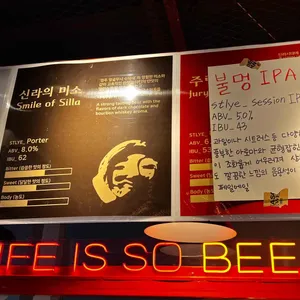 신라의 미소
Smile of Silla
A strong tasting beer with the
flavors of dark chocolate and
Bourbon whiskey aroma
STLYE_ Porter
ABV_ 8.0%
IBU_ 62
Bitter (씁쓸한 맛의 정도)
Sweet (달달한 맛의 정도)
Body (농도)
주
Jury
STLYE
ABV_ 5
IBU_ 53
Bitter
Sweet
Body (농
불멍 IPA
stlye_ Session IP
ABV_ 5.0%
IBU_ 43
과일이나 시트러스 등 다양
풍부한 아로마와 균형잡힌
이 조화롭게 어우러져 사
도 깔끔한 느낌의 음용성이
페일에일
IFE IS SO BEE